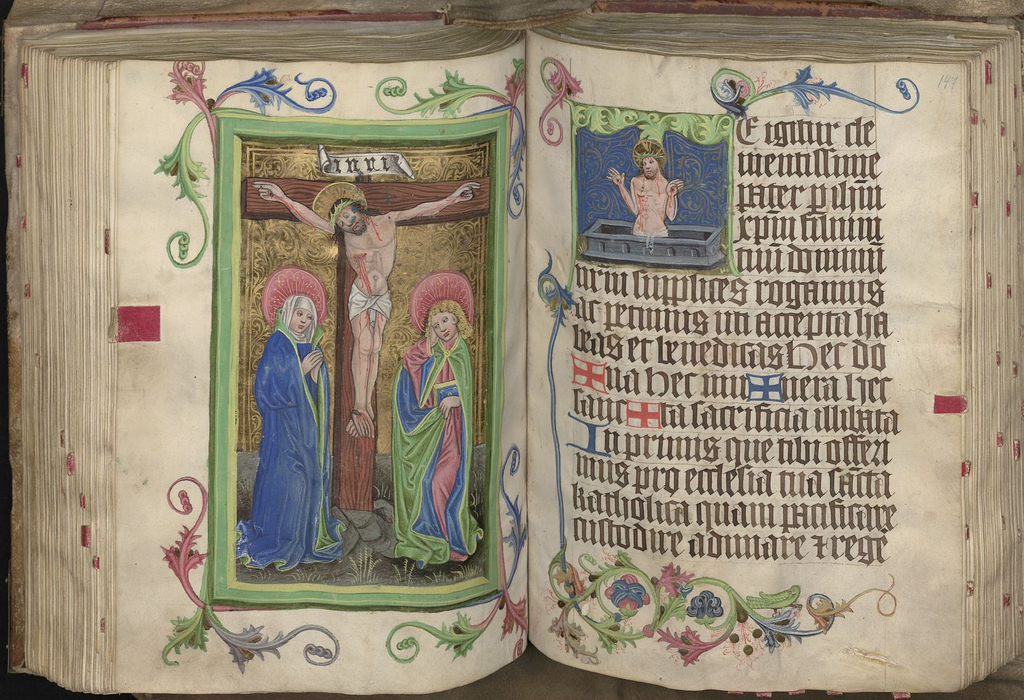 inri
E igitur cle
mentissime
pater p ihm
xpm filium
tuū dominū
nrm supplices rogamus
ac petimus uti accepta ha
beas et benedicas Hec do
✠na hec mu✠nera hec
sanc✠ta sacrificia illibata
In primis que tibi offeri
mus pro ecclesia tua sācta
katholica quam pacificare
custodire adunare ⁊ rege